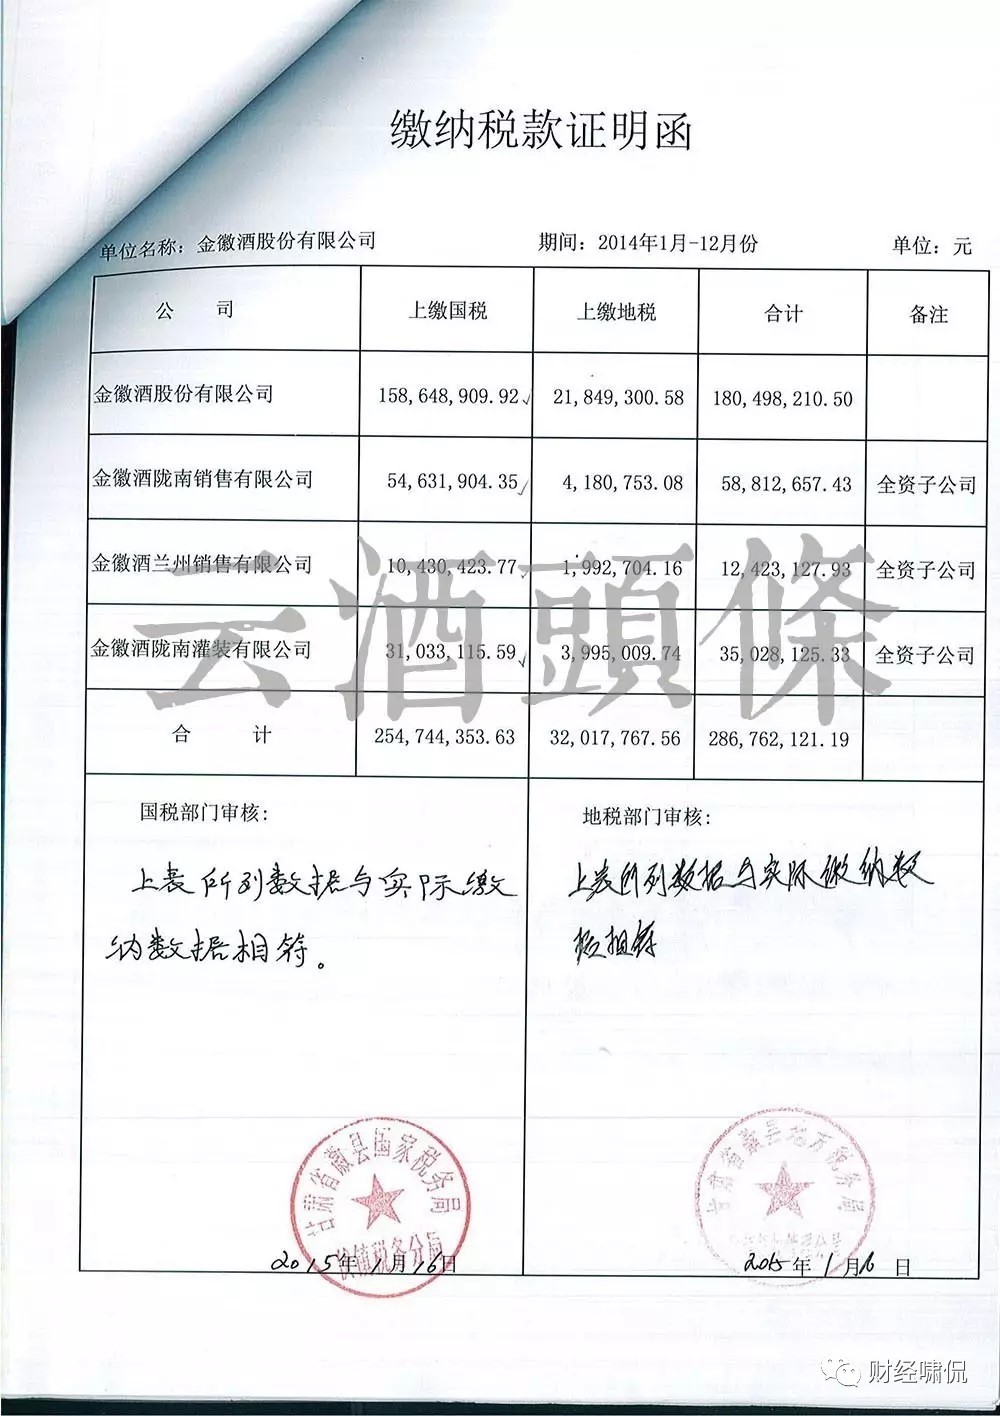 缴纳税款证明函
单位名称：金徽酒股份有限公司 期间：2014年1月-12月份 单位：元
公 司 上缴国税 上缴地税 合计 备注
金徽酒股份有限公司 158,648,909.92 21,849,300.58 180,498,210.50
金徽酒陇南销售有限公司 54,631,904.35 4,180,753.08 58,812,657.43 全资子公司
金徽酒兰州销售有限公司 10,430,423.77 1,992,704.16 12,423,127.93 全资子公司
金徽酒陇南灌装有限公司 31,033,115.59 3,995,009.74 35,028,125.33 全资子公司
合 计 254,744,353.63 32,017,767.56 286,762,121.19
云酒頭條
国税部门审核：
上表所列数据与实际缴
纳数据相符。
甘肃省徽县国家税务局
税务分局
2015年1月16日
地税部门审核：
上表所列数据与实际缴纳数
据相符
甘肃省徽县地方税务局
2015年1月16日
财经啸侃